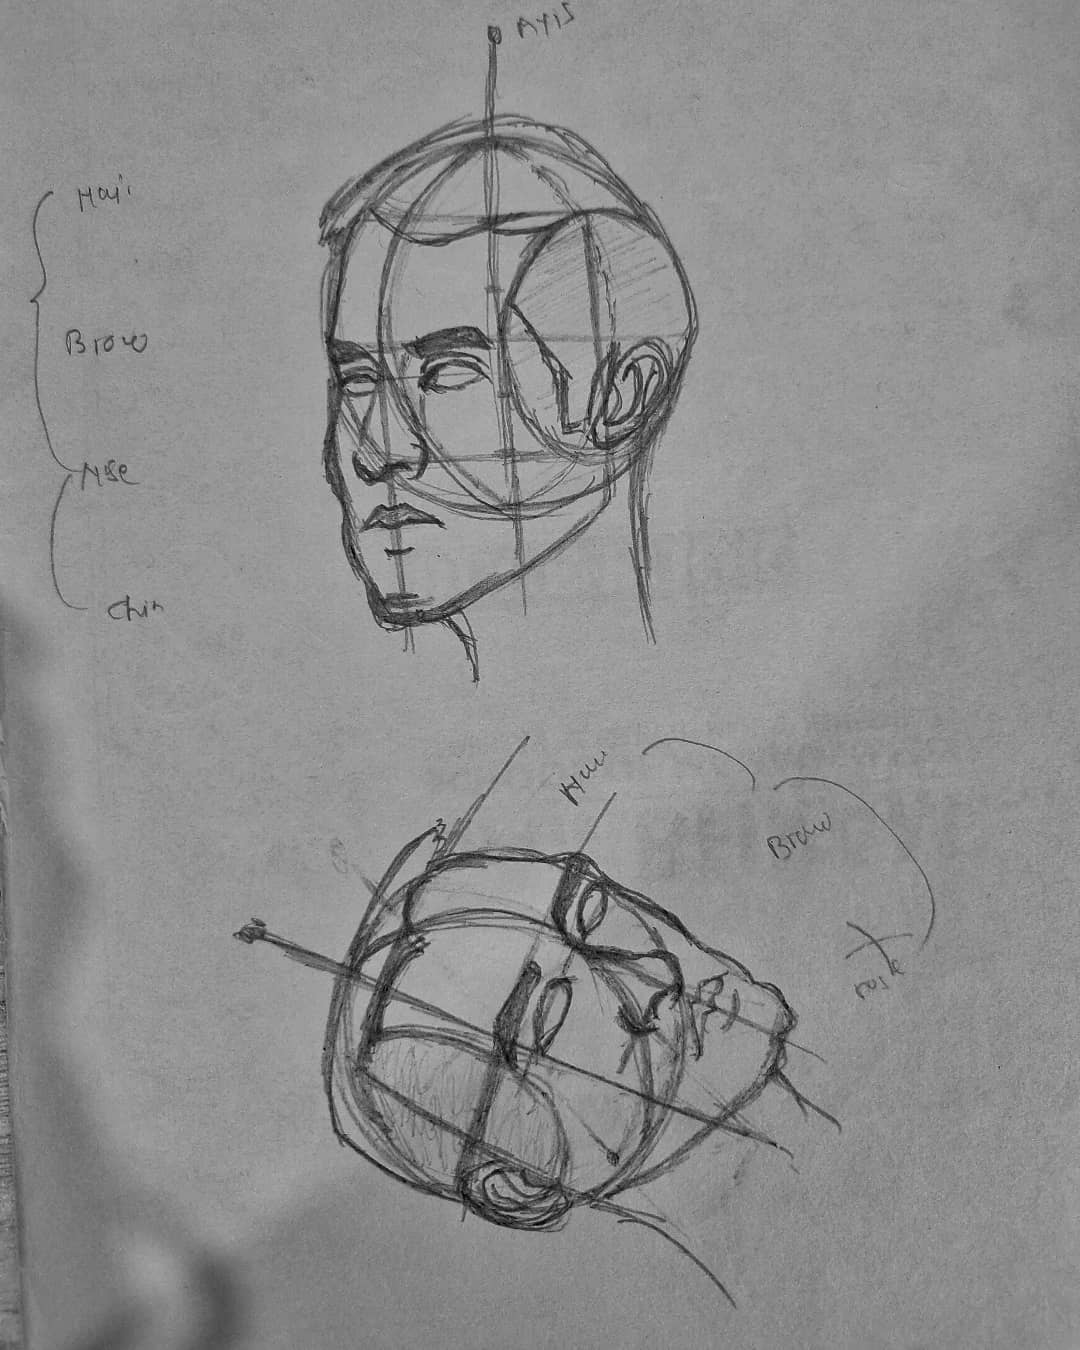 AXIS
Hair
Brow
Nose
Chin
Brow
nose